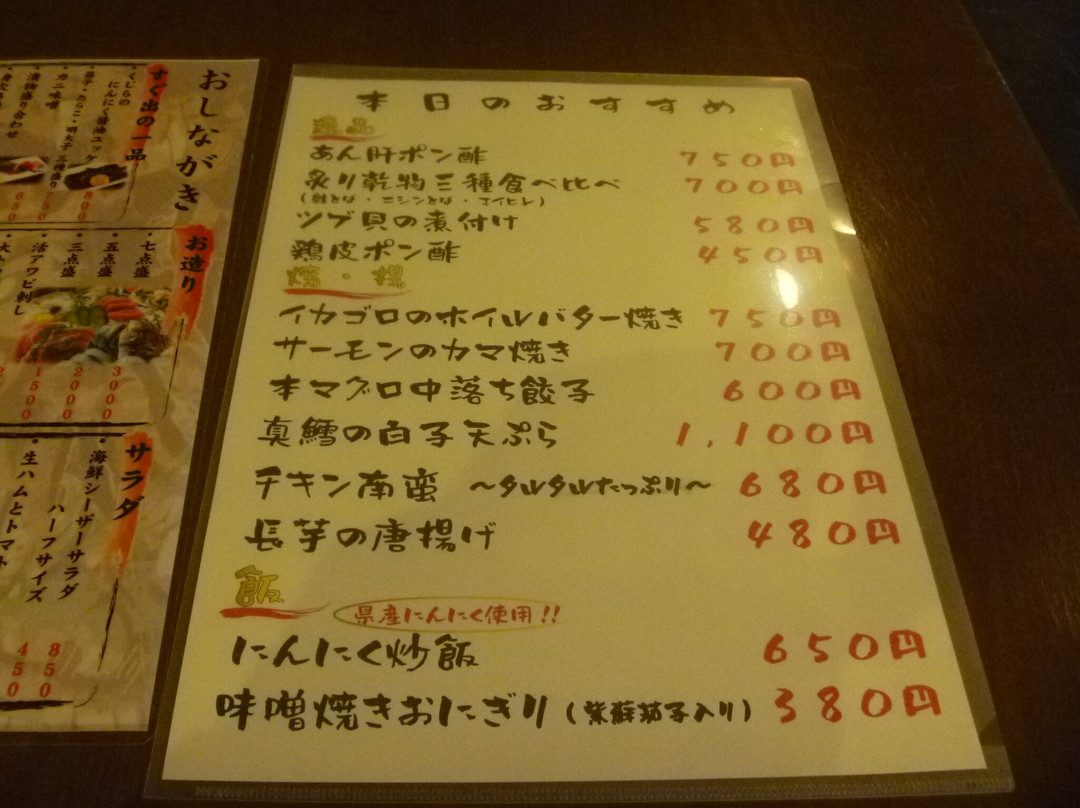 おしながき
すぐ出の一品
・くじらの
にんにく醤油ユッケ
800
カニ味噌
お造り
・七点盛
3000
・五点盛
2000
・三点盛
1500
・活アワビ刺し
サラダ
・海鮮シーザーサラダ
850
ハーフサイズ
450
・生ハムとトマト
本日のおすすめ
あん肝ポン酢 750円
炙り乾物三種食べ比べ 700円
(鮭とば・ニシンとば・エイヒレ)
ツブ貝の煮付け 580円
鶏皮ポン酢 450円
焼・揚
イカゴロのホイルバター焼き 750円
サーモンのカマ焼き 700円
本マグロ中落ち餃子 600円
真鱈の白子天ぷら 1,100円
チキン南蛮 ～タルタルたっぷり～ 680円
長芋の唐揚げ 480円
飯
県産にんにく使用!!
にんにく炒飯 650円
味噌焼きおにぎり(紫蘇茄子入り) 380円